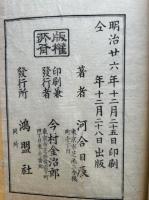 明治廿六年十二月二十五日印刷
仝 年十二月二十八日出版
版權
所有
著者 河合日辰
印刷兼
發行者 今村金治郎
發行所 鴻盟社